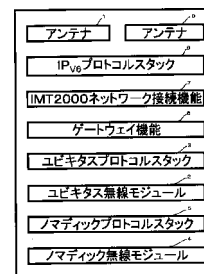 アンテナ アンテナ
IPV6プロトコルスタック
IMT2000ネットワーク接続機能
ゲートウェイ機能
ユビキタスプロトコルスタック
ユビキタス無線モジュール
ノマディックプロトコルスタック
ノマディック無線モジュール